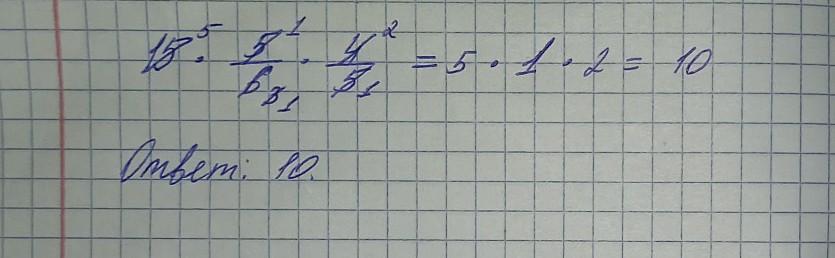 15⁵ · 5¹/6₃₁ · 4²/5₁ = 5 · 1 · 2 = 10
Ответ: 10.